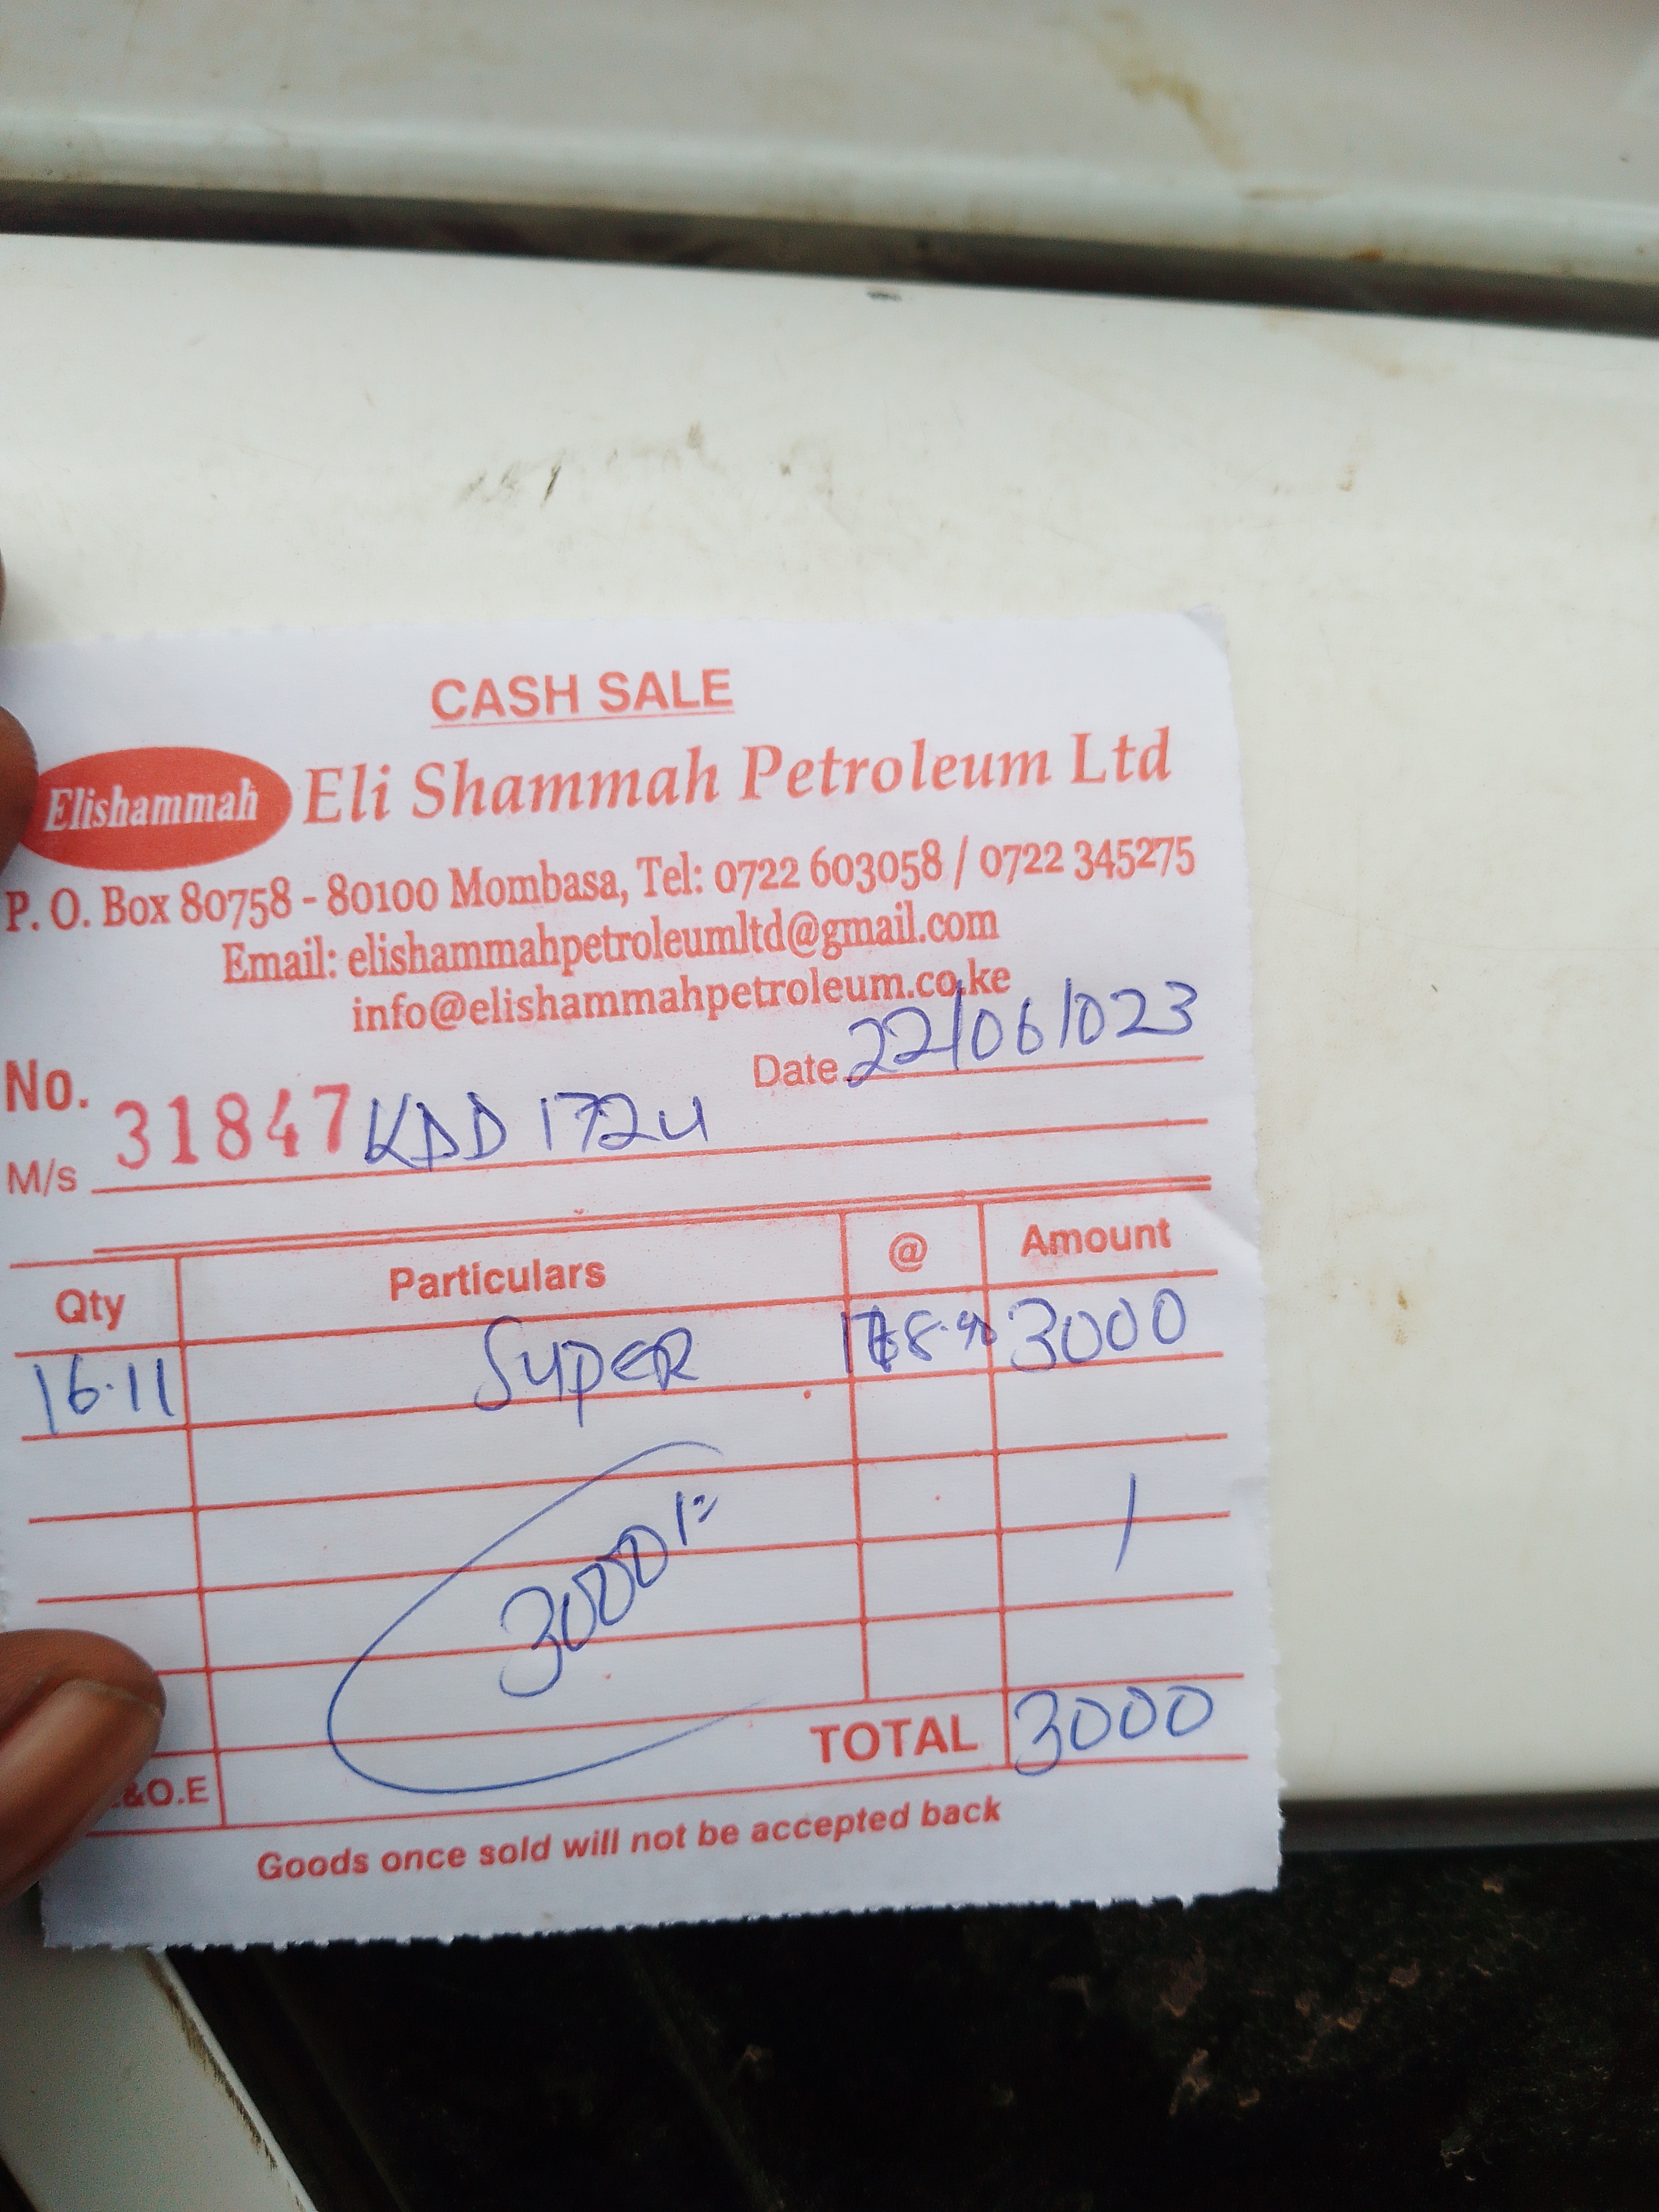 CASH SALE
Elishammah Eli Shammah Petroleum Ltd
P. O. Box 80758 - 80100 Mombasa, Tel: 0722 603058 / 0722 345275
Email: elishammahpetroleumltd@gmail.com
info@elishammahpetroleum.co.ke
Date 22/06/023
No. 31847 KDD 172U
M/s
Qty Particulars @ Amount
16.11 SUPER 3000
3000/=
TOTAL 3000
&O.E
Goods once sold will not be accepted back